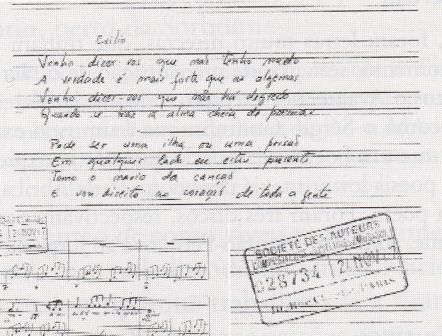 Exílio
Venho dizer-vos que não tenho medo
A verdade é mais forte que as algemas
Venho dizer-vos que não há degredo
Quando se traz a alma cheia de poemas
Pode ser uma ilha ou uma prisão
Em qualquer lado eu estou presente
Tomo o navio da canção
E vou direito ao coração de toda a gente
21 NOV 7
SOCIETE DES AUTEURS
028734 21 NOV 7
PARIS